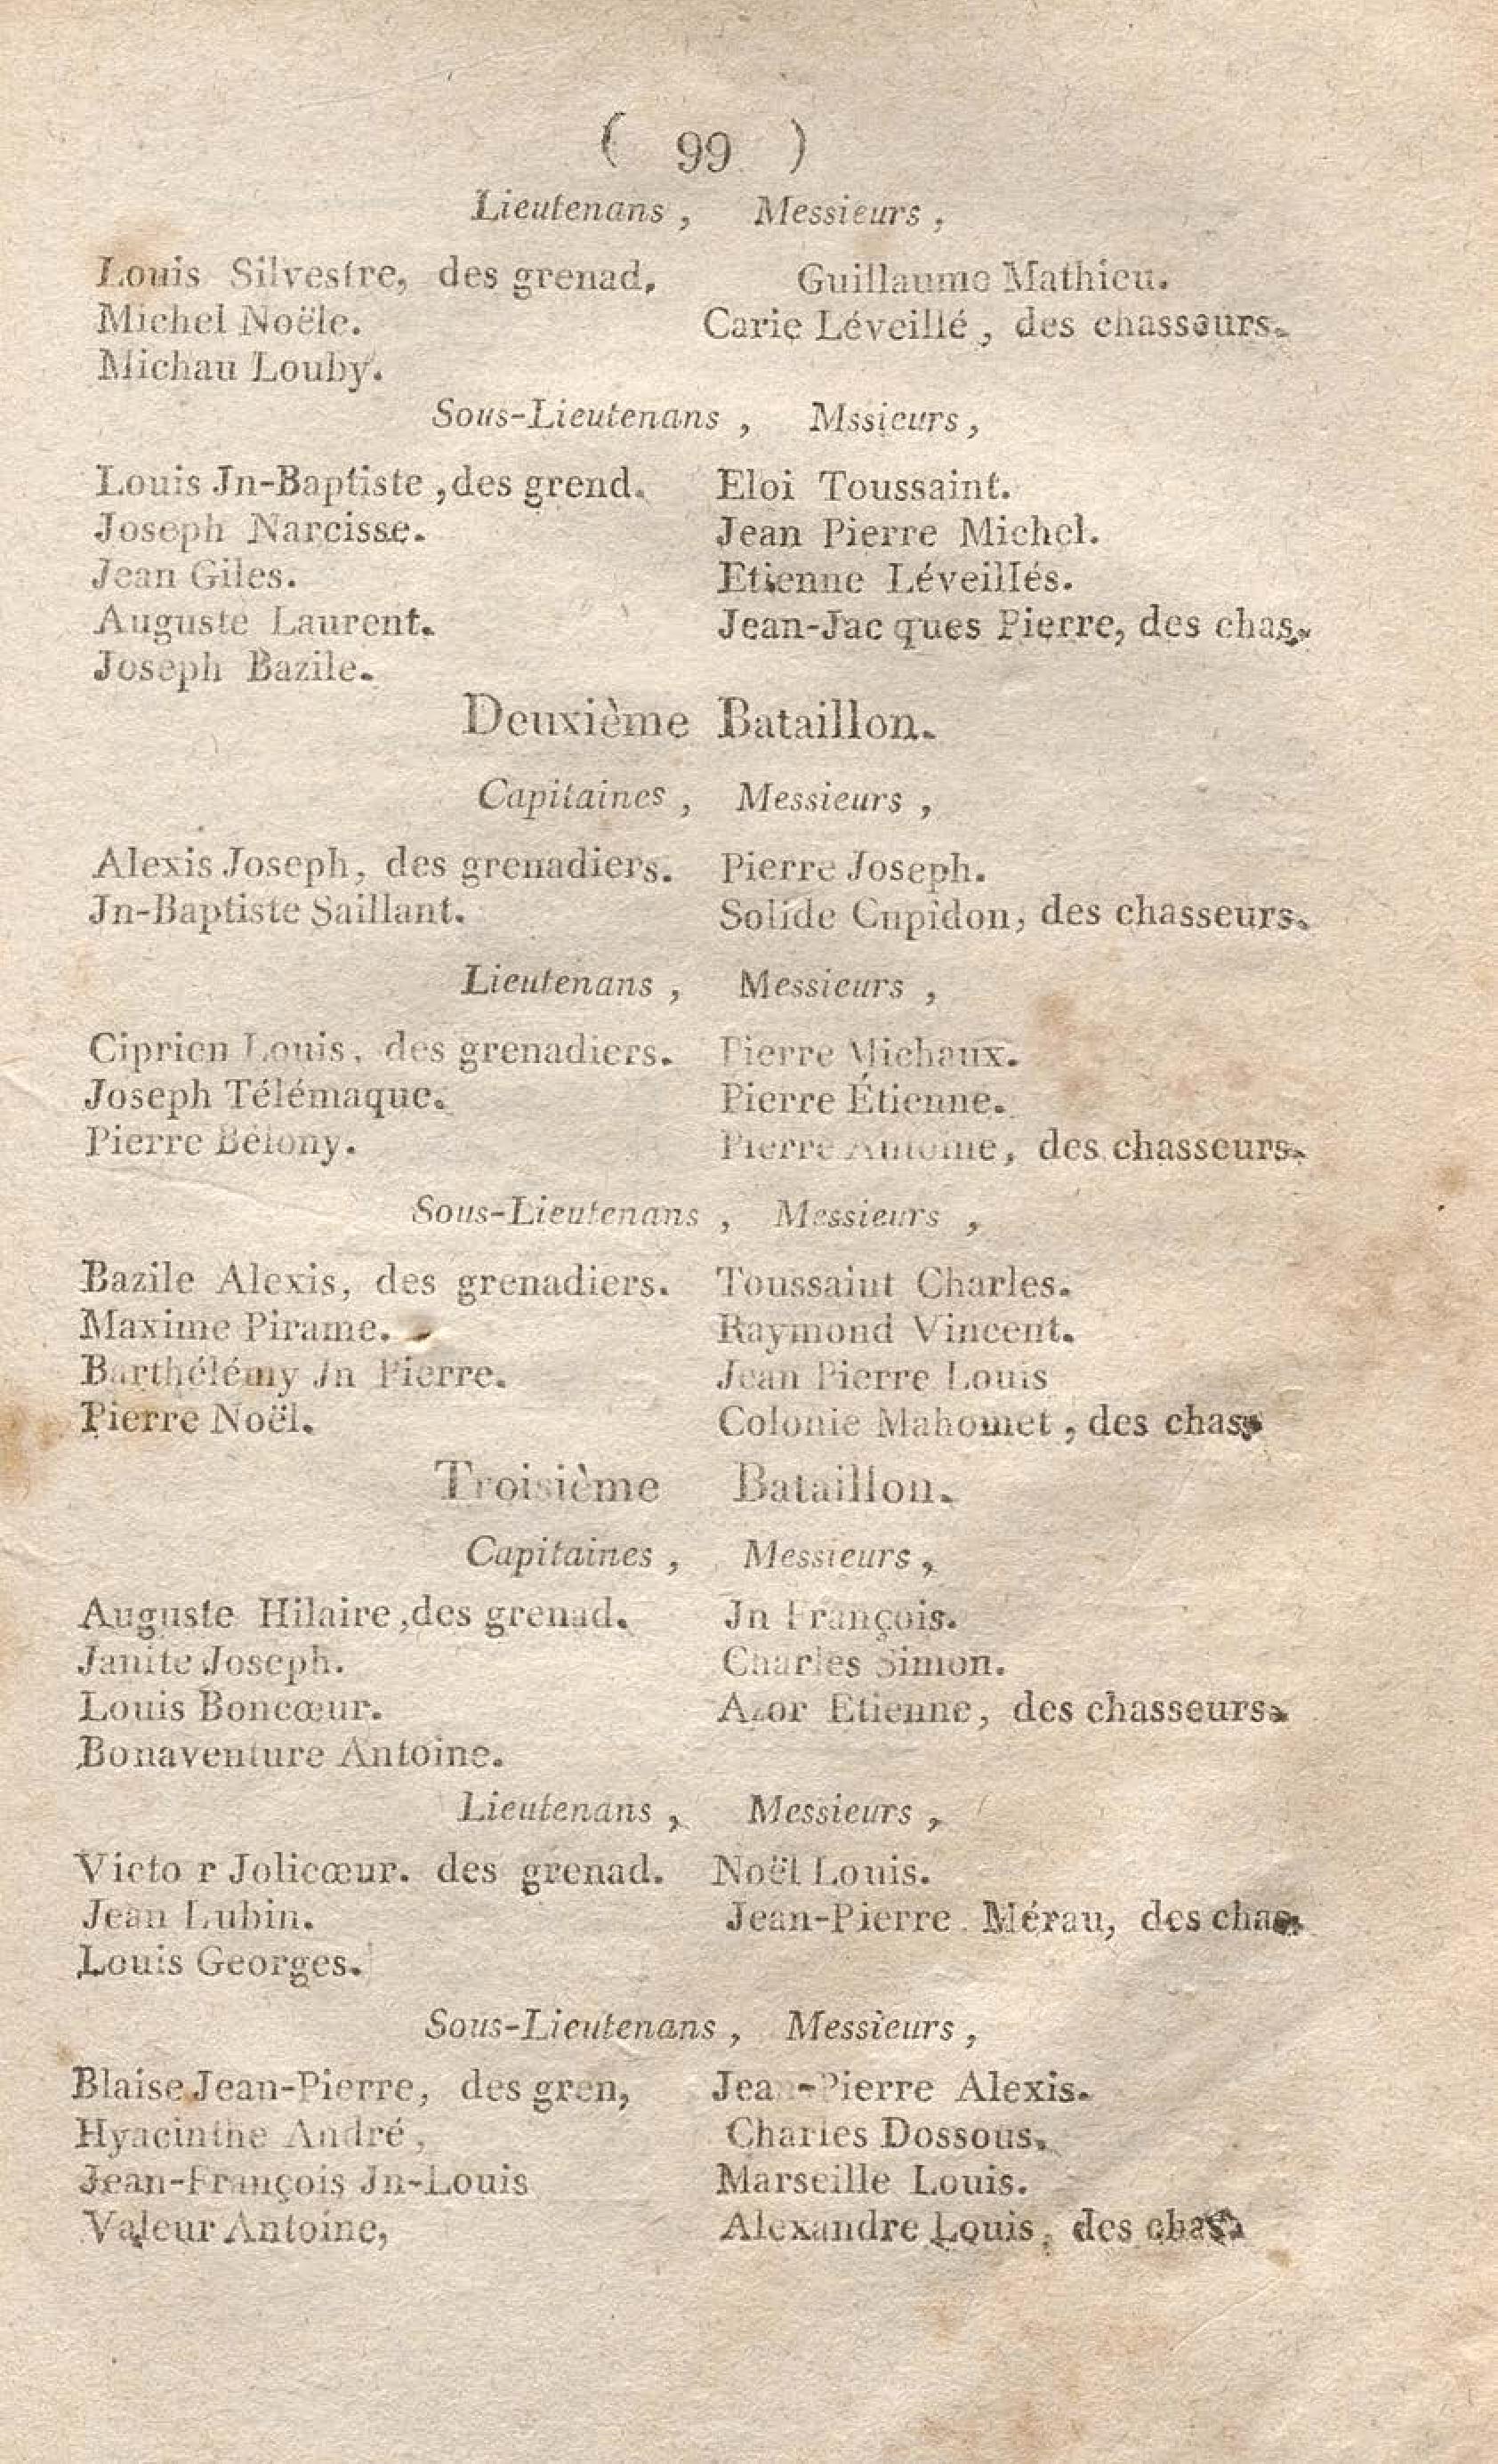 ( 99 )
Lieutenans, Messieurs,
Louis Silvestre, des grenad. Guillaume Mathieu.
Michel Noële. Carie Léveillé, des chasseurs.
Michau Louby.
Sous-Lieutenans, Mssieurs,
Louis Jn-Baptiste, des grend. Eloi Toussaint.
Joseph Narcisse. Jean Pierre Michel.
Jean Giles. Etienne Léveillés.
Auguste Laurent. Jean-Jac ques Pierre, des chas.
Joseph Bazile.
Deuxième Bataillon.
Capitaines, Messieurs,
Alexis Joseph, des grenadiers. Pierre Joseph.
Jn-Baptiste Saillant. Solide Cupidon, des chasseurs.
Lieutenans, Messieurs,
Ciprien Louis, des grenadiers. Pierre Michaux.
Joseph Télémaque. Pierre Étienne.
Pierre Bélony. Pierre Antoine, des chasseurs.
Sous-Lieutenans, Messieurs,
Bazile Alexis, des grenadiers. Toussaint Charles.
Maxime Pirame. Raymond Vincent.
Barthélémy Jn Pierre. Jean Pierre Louis
Pierre Noël. Colonie Mahomet, des chas.
Troisième Bataillon.
Capitaines, Messieurs,
Auguste Hilaire, des grenad. Jn François.
Janite Joseph. Charles Simon.
Louis Boncœur. Azor Etienne, des chasseurs.
Bonaventure Antoine.
Lieutenans, Messieurs,
Victo r Jolicœur. des grenad. Noël Louis.
Jean Lubin. Jean-Pierre Mérau, des chas.
Louis Georges.
Sous-Lieutenans, Messieurs,
Blaise Jean-Pierre, des gren, Jean-Pierre Alexis.
Hyacinthe André, Charles Dossous.
Jean-François Jn-Louis Marseille Louis.
Valeur Antoine, Alexandre Louis, des chas.